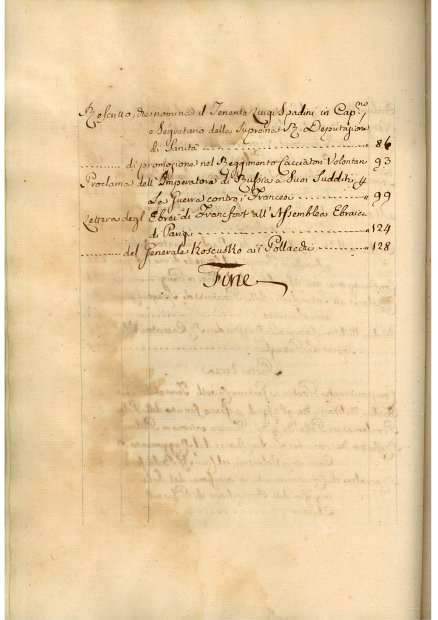 Rescritto, che nomina il Tenente Luigi Spadini in Cap.no
e Segretario della Suprema R. Deputazione
di Sanità 86
di promozione nel Reggimento Cacciatori Volontari 93
Proclama dell'Imperatore di Russia a Suoi Sudditi
La Guerra contro i Francesi 99
Lettera degl'Ebrei di Francfort all'Assemblea Ebraica
di Parigi 124
del Generale Kosciusko ai Pollacchi 128
Fine